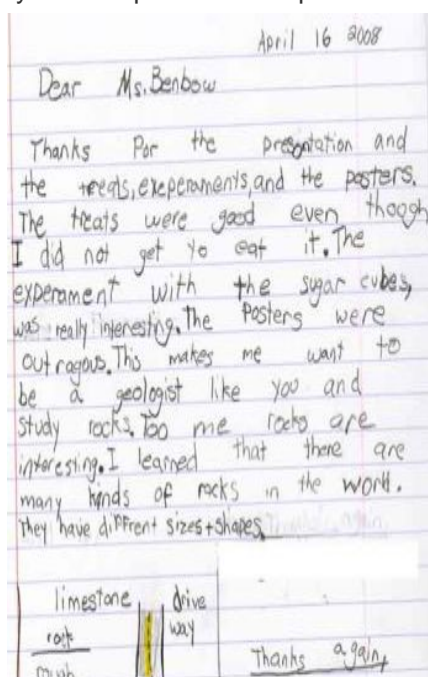 April 16 2008
Dear Ms. Benbow
Thanks for the presentation and
the treats, exeperaments, and the posters.
The treats were good even though
I did not get to eat it. The
experament with the sugar cubes,
was really interesting. The Posters were
outragous. This makes me want to
be a geologist like you and
study rocks. Too me rocks are
interesting. I learned that there are
many kinds of rocks in the world.
They have diffrent sizes + shapes.
limestone drive
rock way
Thanks again,